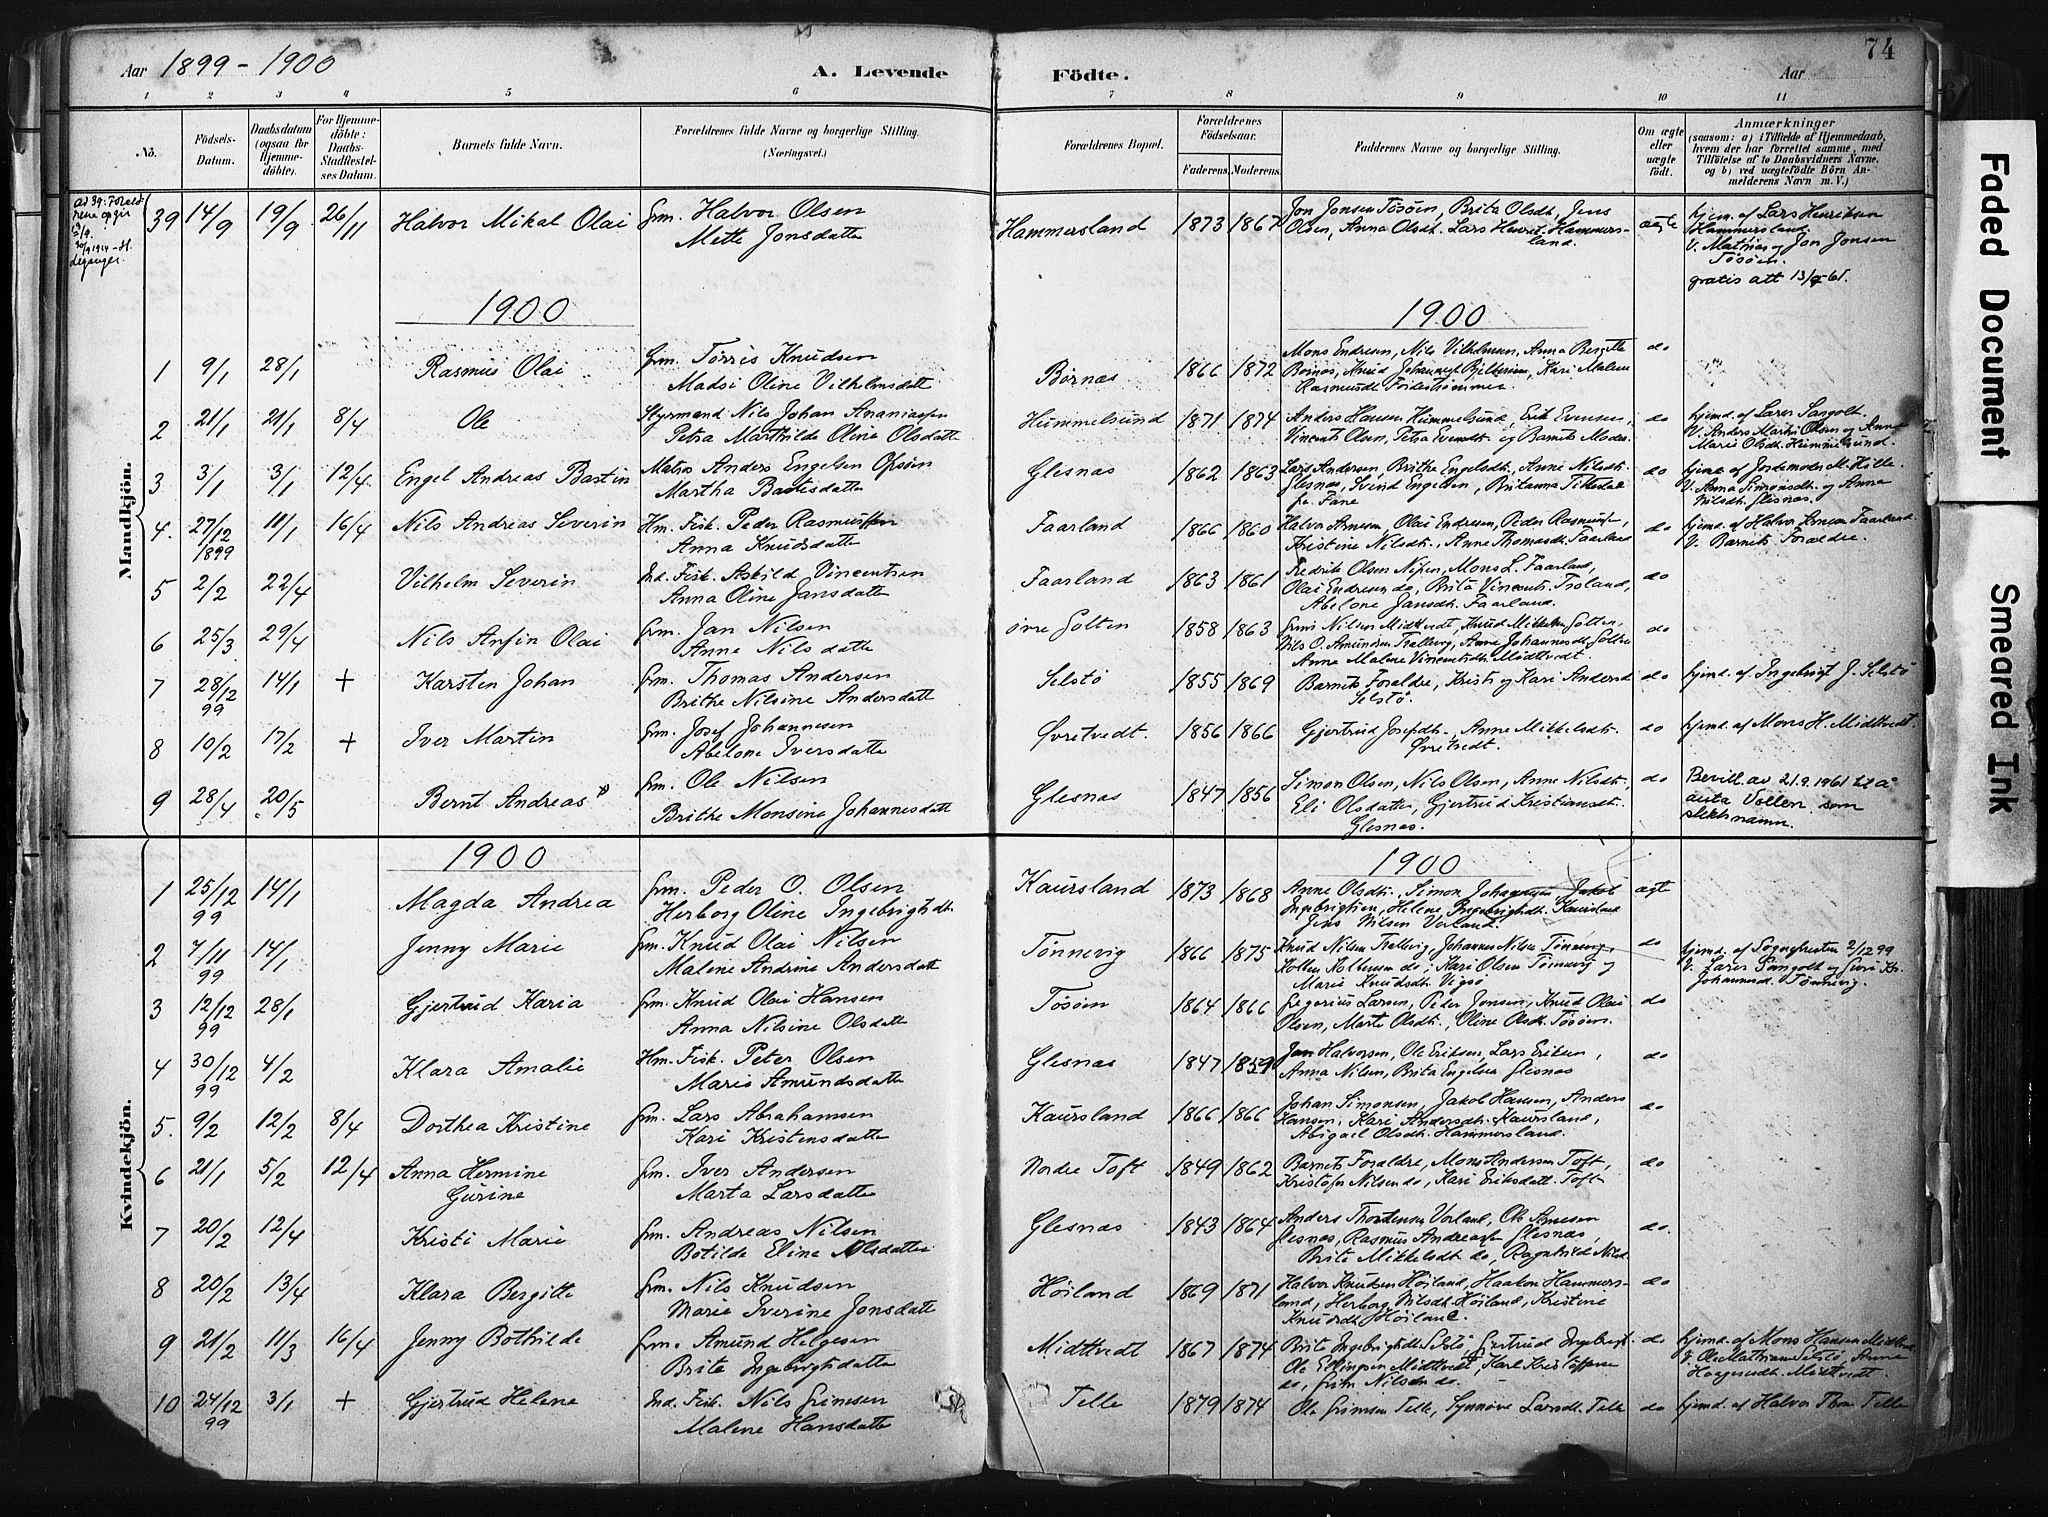 Aar 1899-1900
A. Levende
Födte.
Aar
74
1 2 3 4 5 6 7 8 9 10 11
No.
Födsels-
Datum.
Daabsdatum
(ogsaa for
Hjemme-
döbte).
For Hjemme-
döbte:
Daabs-
Stadfæstel-
ses Datum.
Barnets fulde Navn.
Forældrenes fulde Navne og borgerlige Stilling.
(Næringsvei.)
Forældrenes Bopæl.
Forældrenes
Födselsaar.
Faderens. Moderens.
Faddernes Navne og borgerlige Stilling.
Om ægte
eller
uægte
födt.
Anmærkninger
(saasom: a) i Tilfælde af Hjemmedaab,
hvem der har forrettet samme, med
Tilföielse af to Daabsvidners Navne.
og b) ved uægtefödte Börn An-
melderens Navn m. V.)
Mandkjön.
39 14/9 19/9 26/11 Halvor Mikal Olai Grm. Halvor Olsen
Mette Jonsdatter
Hammersland 1873 1867 Jon Jonsen Tösöen, Brita Olsdt, Jens
Olsen, Anna Olsdt. Lars Henrik. Hammers-
land.
ægte
hjem. af Lars Henriksen
Hammersland.
V. Mathias og Jon Jonsen
Tösöen.
gratis att 13/9-61.
1900
1900
1 9/1 28/1 Rasmus Olai Grm. Torris Knudsen
Madsi Oline Vilhelmsdatt
Börnæs 1866 1872 Mons Endresen, Nils Vilhelmsen, Anna Bergitte
Börnæs, Knud Johannes, Kari Malene
do
2 21/1 21/1 8/4 Ole Styrmand Nils Johan Ananiassen
Petra Marthilde Oline Olsdatter
Hummelsund 1871 1874 Anders Hansen Hummelsund, Erik Evensen,
Vincents Olsen, Petra og Barnets Moder.
do
hjemd. af Lærer Sangolt.
V. Anders Martin Olsen og Anne
Marie Olsdt. Hummelsund.
3 3/1 3/1 12/4 Engel Andreas Bastin Matros Anders Engelsen
Martha Bastisdatter
Glesnæs 1862 1863 Lars Andersen, Brithe Engelsdt., Anne Nilsdt.
Glesnæs, Svend Engelsen, Britanna
fra Fane
do
hjemd. af Jordemoder M. Hille.
V. Anna Simonsdt. og Anna
Nilsdt. Glesnæs.
4. 27/12 1899 11/1 16/4 Nils Andreas Severin Hm. Fisk. Peder Rasmussen
Anna Knudsdatter
Faarland 1866 1860 Halvor Arnesen, Olai Endresen, Peder Rasmussen,
Kristine Nilsdt., Anne Thomasdt. Faarland
do
hjemd. af Halvor Arnesen Faarland.
V. Barnets Forældre.
5 2/2 22/4 Vilhelm Severin Ind. Fisk. Askild Vincentsen
Anna Oline Jansdatter
Faarland 1863 1861 Fredrik Olsen Nipen, Mons L. Faarland,
Olai Endresen do, Brita Vincents. Troland,
Abelone Jansdt. Faarland.
do
6 25/3 29/4 Nils Anfin Olai Grm. Jan Nilsen
Anne Nilsdatter
övre Golten 1858 1863 Grim Nilsen Midttvedt, Knud Mikkelsen Golten,
Nils O. Amundsen Trællevig, Anne Johannesdt. Golten
Anne Malene Vincentsdt. Midttvedt.
do
7 28/12 99 14/1 + Karsten Johan Grm. Thomas Andersen
Brithe Nilsine Andersdatt
Selstö 1855 1869 Barnets Forældre, Kristi og Kari Andersd
Selstö.
do
hjemd. af Ingebrigt J. Selstö
8 10/2 17/2 + Iver Martin Grm. Josef Johannesen
Abelone Iversdatter
Övretvedt. 1856 1866 Gjertrud Josefsdt., Anne Mikkelsdt.
Övretvedt.
do
hjemd. af Mons H. Midttvedt.
9 28/4 20/5 Bernt Andreas Grm. Ole Nilsen
Brithe Monsine Johannesdatt
Glesnæs 1847 1856 Simon Olsen, Nils Olsen, Anne Nilsdt.,
Eli Olsdatter, Gjertrud Kristiansdt.
Glesnæs.
do
Bevill. av 21.9.1961 til å
anta Vollen som
slektsnamn.
Kvindekjön.
1900
1900
1 25/12 99 14/1 Magda Andrea Grm. Peder O. Olsen
Herborg Oline Ingebrigtsdt.
Kaursland 1873 1868 Anne Olsdt., Simon Johannesen, Jakob
Ingebrigtsen, Helene Ingebrigtsdt. Kaursland
Jens Nilsen Vorland.
ægt
2 7/11 99 14/1 Jenny Marie Grm. Knud Olai Nilsen
Malene Andrine Andersdatt
Tönnevig 1866 1875 Knud Nilsen Trællevig, Johannes Nilsen Tönnevig,
do; Kari Olsen Tönnevig og
Marie Knudsdt. Vigsö
do
hjemd. af Sognepresten 2/12 99
V. Lærer Sangolt og Guri Kr.
Johannesdt. Tönnevig.
3 12/12 99 28/1 Gjertrud Karia Grm. Knud Olai Hansen
Anna Nilsine Olsdatter
Tösöen 1864 1866 Gregorius Larsen, Peder Jonsen, Knud Olai
Olsen, Marte Olsdt., Oline Olsdt. Tösöen.
do
4 30/12 99 4/2 Klara Amalie Hm. Fisk. Peter Olsen
Maris Amundsdatter
Glesnæs 1847 1859 Jan Halvorsen, Ole Eriksen, Lars Eriksen,
Anna Nilsen, Brita Engelsen Glesnæs
do
5. 9/2 12/2 8/4 Dorthea Kristine Grm. Lars Abrahamsen
Kari Kristensdatter
Kaursland 1866 1866 Johan Simonsen, Jakob Hansen, Anders
Hansen, Kari Andersdt. Kaursland,
Abigael Olsdt. Hammersland.
do
6 21/1 5/2 12/4 Anna Hermine
Gurine
Grm. Iver Andersen
Marta Larsdatter
Nordre Toft 1849 1862 Barnets Forældre, Mons Andersen Toft,
Kristofer Nilsen do, Kari Eriksdatt. Toft
do
7 20/2 12/4 Kristi Marie Grm. Andreas Nilsen
Botilde Eline Olsdatter
Glesnæs 1843 1864 Anders Thorstensen Vorland, Ole Arnesen
Glesnæs, Rasmus Andreassen Glesnæs,
Brite Mikkelsdt. do, Ragnhilde Nilsd.
do.
8 20/2 13/4 Klara Bergitte Grm. Nils Knudsen
Marie Iverine Jonsdatter
Höiland 1869 1871 Halvor Knudsen Höiland, Haakon Hammers-
land, Herborg Nilsdt. Höiland, Kristine
Knudsdt. Höiland.
do
9 21/2 11/3 16/4 Jenny Bothilde Grm. Amund Helgesen
Brite Ingebrigtsdatter
Midttvedt 1867 1874 Brite Ingebrigtsdt. Selstö, Gjertrud Ingebrigt.
Ole Midttvedt, Karl Kristoffersen
do, Grim Nilsen do.
do
hjemd. af Mons Hansen Midttvedt
V. Ole Mathiasen Selstö, Anne
Midttvedt.
10 24/12 99 3/1 + Gjertrud Helene Ind. Fisk. Nils Grimsen
Malene Hansdatter
Telle 1879 1874 Ole Grimsen Telle, Synnöve Larsdt. Telle
do
hjemd. af Halvor Thom Telle
Faded Document
Smeared Ink